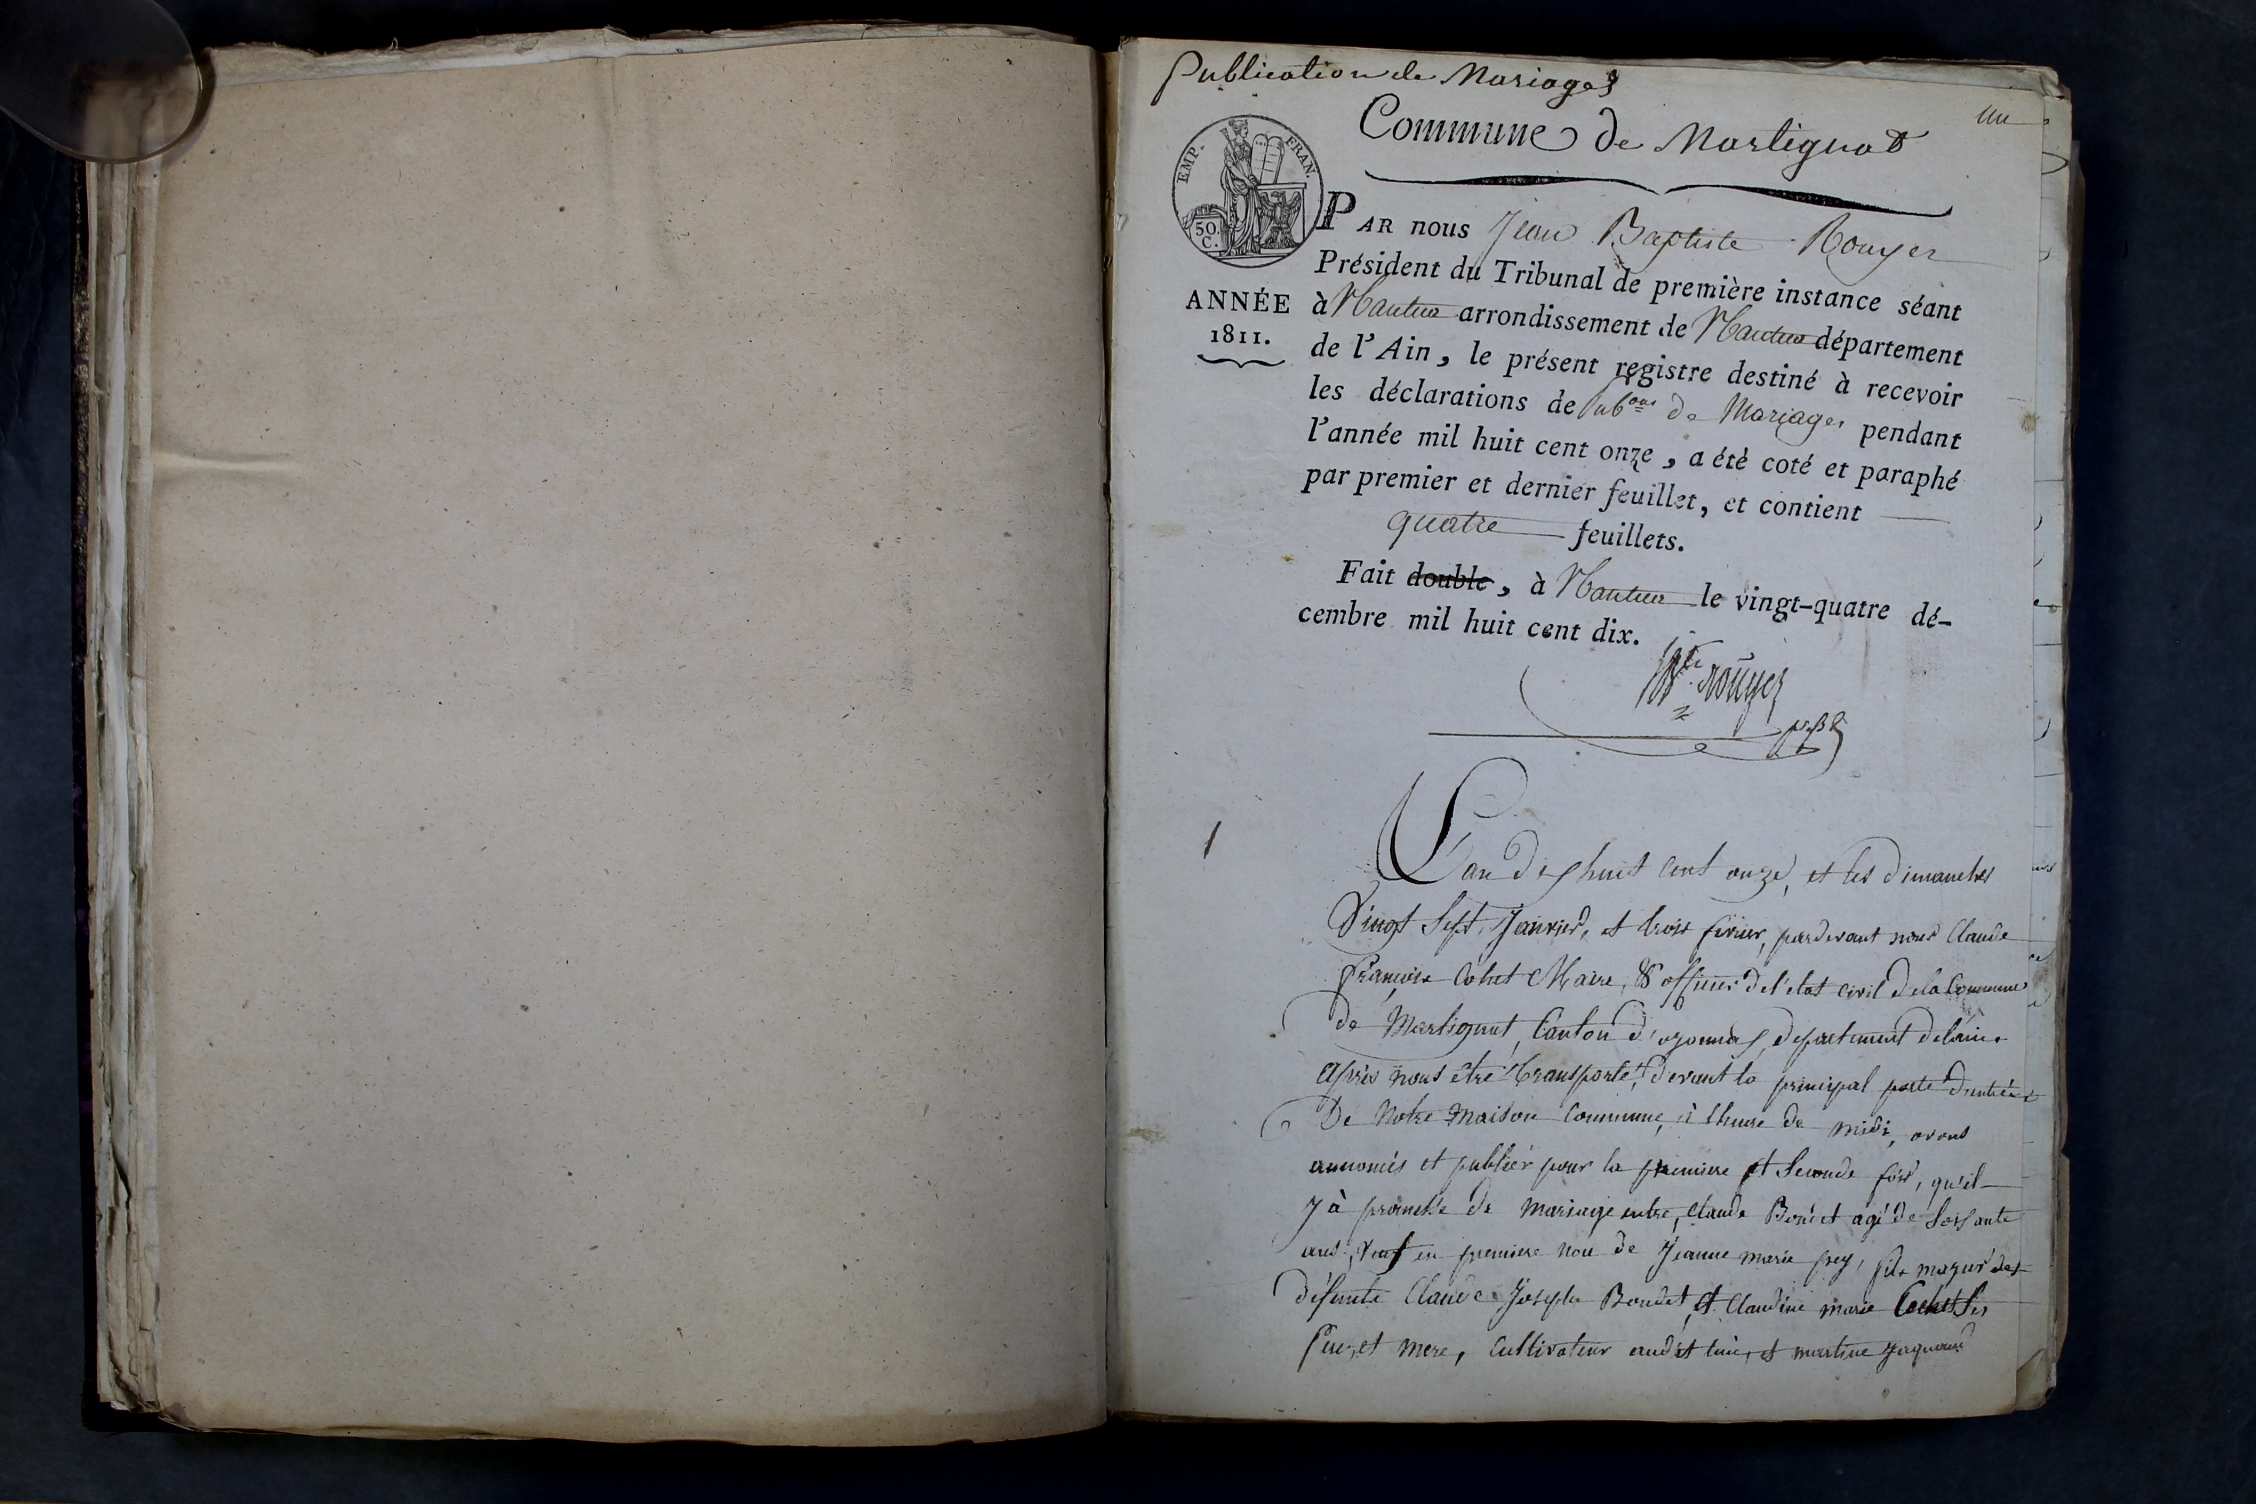 Publication de Mariages
un
Commune de Martignat
EMP. FRAN.
50.
C.
PAR nous Jean Baptiste Rouyer
Président du Tribunal de première instance séant
ANNÉE
1811.
à Nantua arrondissement de Nantua département
de l'Ain, le présent registre destiné à recevoir
les déclarations de Pub.ons de Mariages pendant
l'année mil huit cent onze, a été coté et paraphé
par premier et dernier feuillet, et contient
quatre feuillets.
Fait double, à Nantua le vingt-quatre dé-
cembre mil huit cent dix.
rouyer
1
L'an dixhuit cent onze, et les dimanches
Vingt Sept Janvier, et trois fevrier, pardevant nous Claude
François Cohet Maire, & officier de l'etat civil de la Commune
de Martignat, Canton d'oyonnas, departement delain.
Après nous être transporté, devant la principal porte d'entrée
De Notre Maison Commune, à lheure de midi, avons
annoncés et publier pour la premiere et Seconde fois, qu'il
y à promesse de mariage entre, Claude Bondet agé de Soissante
ans, veuf en premiere noce de Jeanne marie frey, fils majeur des
défunts Claude Joseph Bondet, et Claudine marie Cochet Ses
Pere, et mere, Cultivateur audit lieu, et martine